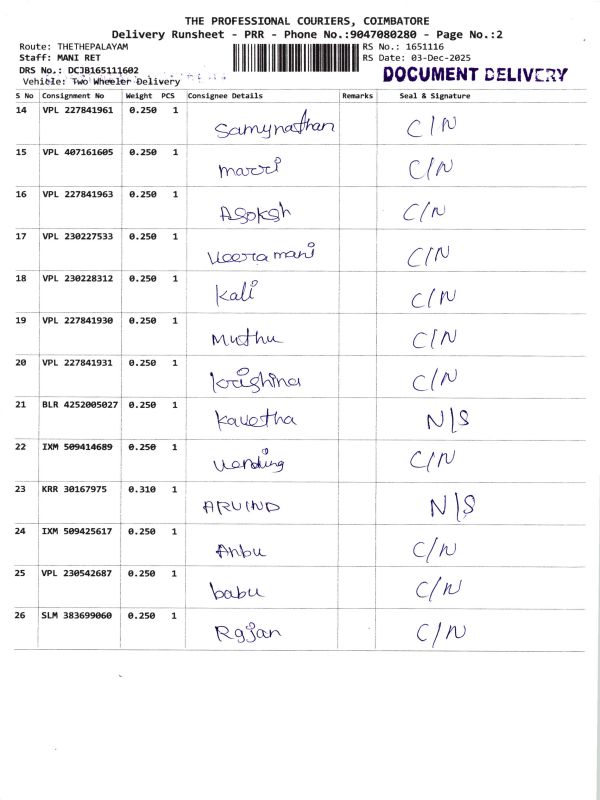 THE PROFESSIONAL COURIERS, COIMBATORE
Delivery Runsheet - PRR - Phone No.:9047080280 - Page No.:2
Route: THETHEPALAYAM RS No.: 1651116
Staff: MANI RET RS Date: 03-Dec-2025
DRS No.: DCJB165111602 DOCUMENT DELIVERY
Vehicle: Two Wheeler Delivery
S No Consignment No Weight PCS Consignee Details Remarks Seal & Signature
14 VPL 227841961 0.250 1 Samynathan C/N
15 VPL 407161605 0.250 1 marri C/N
16 VPL 227841963 0.250 1 Asoksh C/N
17 VPL 230227533 0.250 1 veeramani C/N
18 VPL 230228312 0.250 1 Kali C/N
19 VPL 227841930 0.250 1 Muthu C/N
20 VPL 227841931 0.250 1 krishina C/N
21 BLR 4252005027 0.250 1 kavetha N/S
22 IXM 509414689 0.250 1 C/N
23 KRR 30167975 0.310 1 ARVIND N/S
24 IXM 509425617 0.250 1 Anbu C/N
25 VPL 230542687 0.250 1 babu C/N
26 SLM 383699060 0.250 1 Rajan C/N